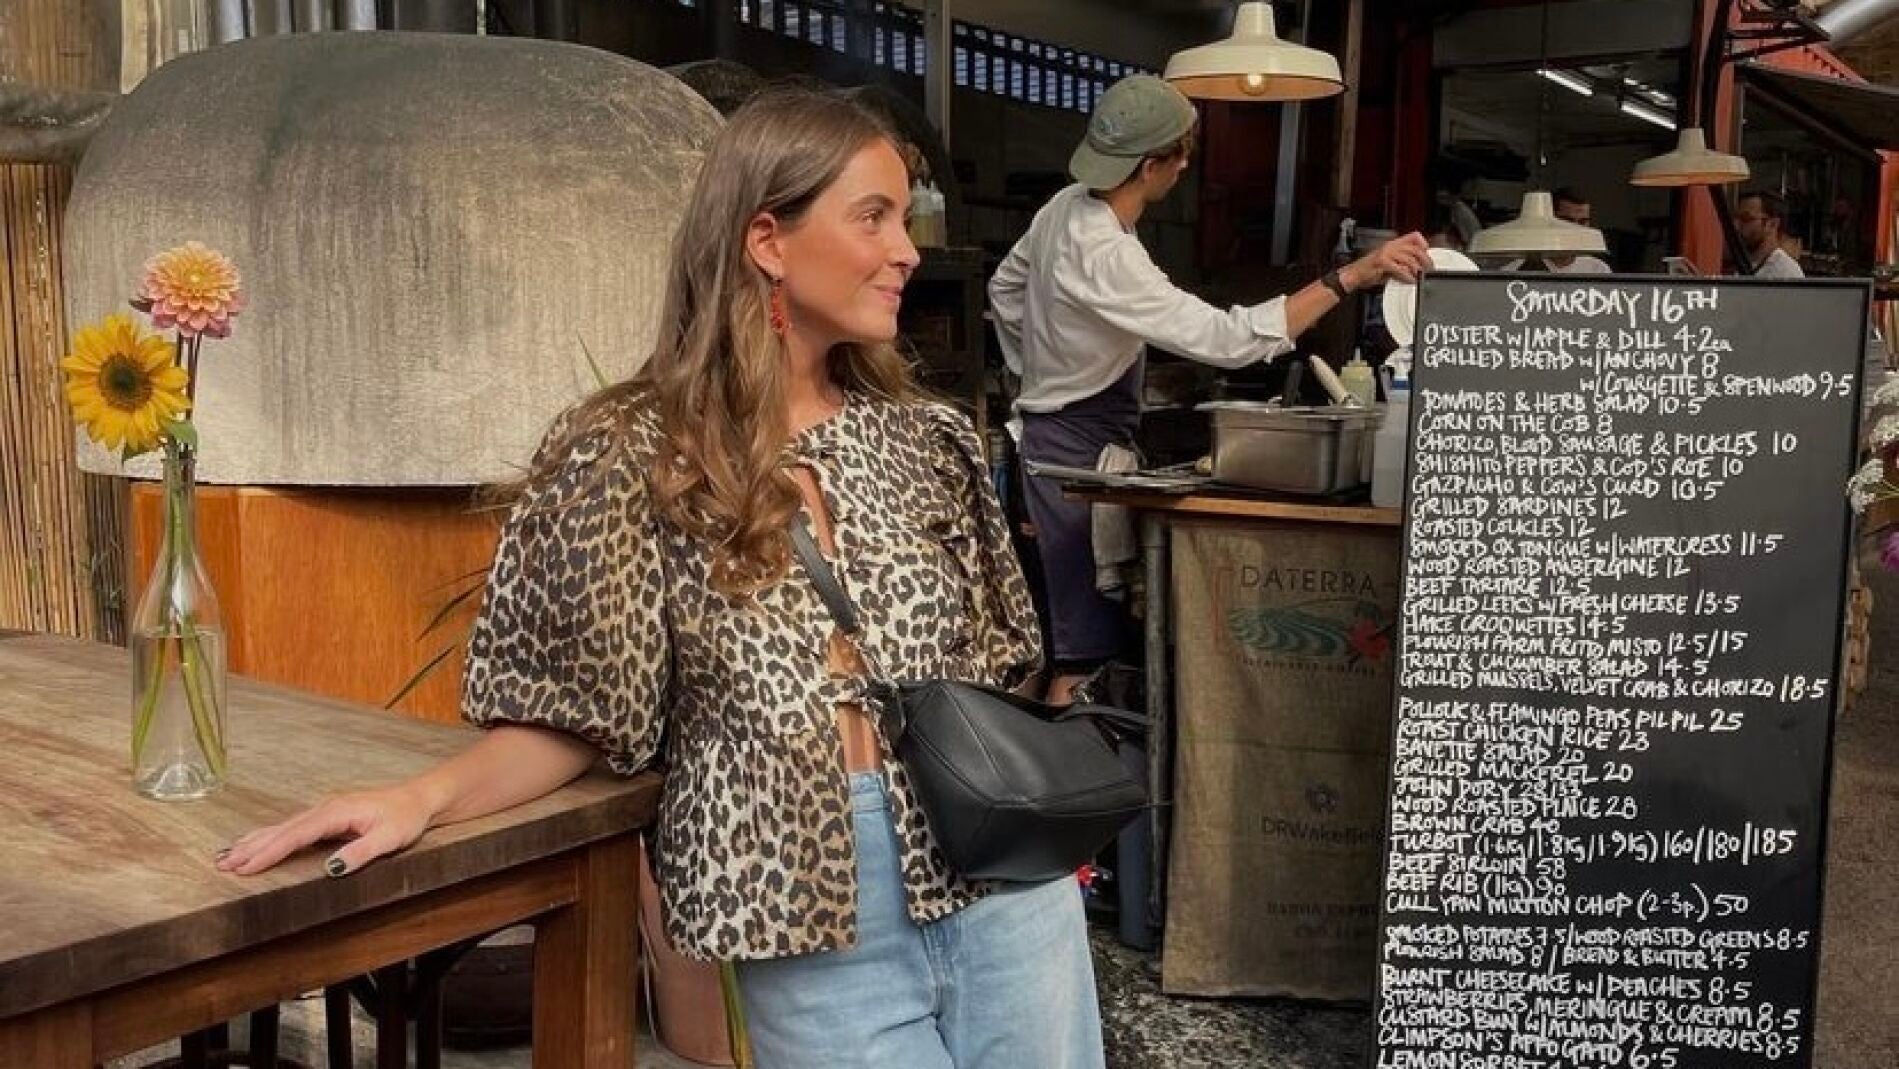 SATURDAY 16TH
OYSTER W/ APPLE & DILL 4.2ea
GRILLED BREAD W/ ANCHOVY 8
W/ COURGETTE & SPENWOOD 9.5
TOMATOES & HERB SALAD 10.5
CORN ON THE COB 8
CHORIZO, BLOOD SAUSAGE & PICKLES 10
SHISHITO PEPPERS & COD'S ROE 10
GAZPACHO & COW'S CURD 10.5
GRILLED SARDINES 12
ROASTED COCKLES 12
SMOKED OX TONGUE W/ WATERCRESS 11.5
WOOD ROASTED AUBERGINE 12
BEEF TARTARE 12.5
GRILLED LEEKS W/ FRESH CHEESE 13.5
HAKE CROQUETTES 14.5
FLOURISH FARM FRITO MISTO 12.5/15
TROUT & CUCUMBER SALAD 14.5
GRILLED MUSSELS, VELVET CRAB & CHORIZO 18.5
POLLOCK & FLAMINGO PEAS PIL PIL 25
ROAST CHICKEN RICE 23
BAVETTE SALAD 20
GRILLED MACKEREL 20
JOHN DORY 28/33
WOOD ROASTED PLAICE 28
BROWN CRAB 40
TURBOT (1.6KG/1.8KG/1.9KG) 160/180/185
BEEF SIRLOIN 58
BEEF RIB (1KG) 90
CULL YAW MUTTON CHOP (2-3P.) 50
SMOKED POTATOES 7.5/WOOD ROASTED GREENS 8.5
FLOURISH SALAD 8/BREAD & BUTTER 4.5
BURNT CHEESECAKE W/ PEACHES 8.5
STRAWBERRIES, MERINGUE & CREAM 8.5
CUSTARD BUN W/ ALMONDS & CHERRIES 8.5
CLIMPSON'S AFFOGATO 6.5
LEMON SORBET
DATERRA
DRWakefield